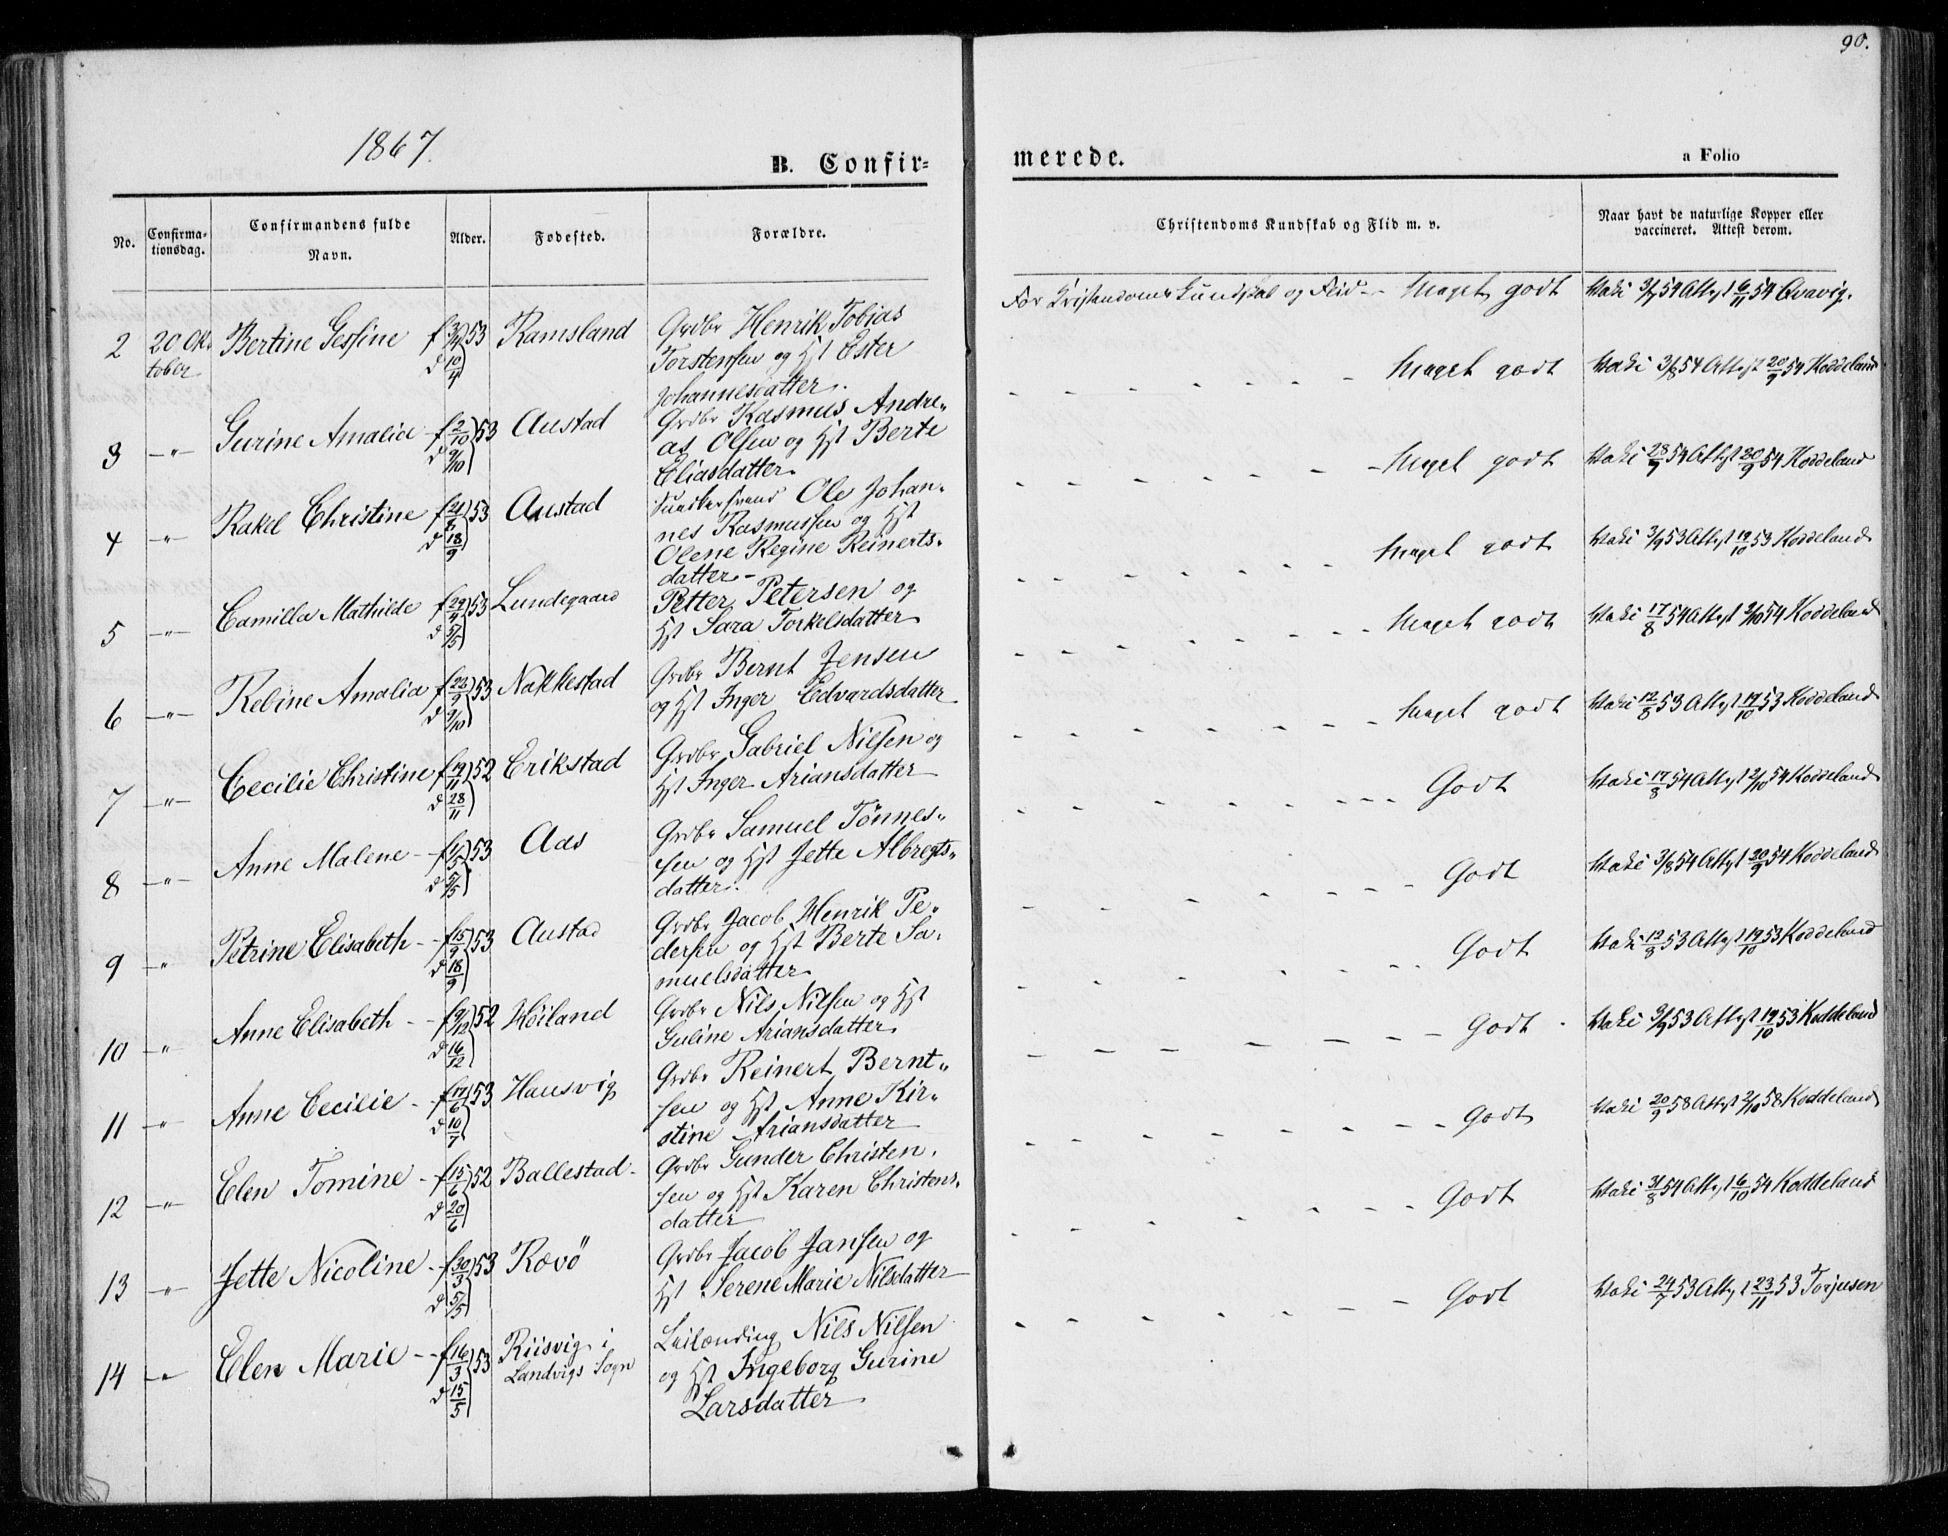 90.
1867.
B. Confir=
merede.
a Folio
No.
Confirma-
tionsdag.
Confirmandens fulde
Navn.
Alder.
Fødested.
Forældre.
Christendoms Kundskab og Flid m. v.
Naar havt de naturlige Kopper eller
vaccineret. Attest derom.
2 20 Ok- Bertine Gesine f 3/4 53 Ramsland Grdbr Henrik Tobias
tober d 10/4 Torstensen og Hst Ester
Johannesdatter.
For Kristendoms Kundskab og Flid -- Meget godt Vaki 3/7 54 Attest 6/11 54 Qvavig.
3 -"- Gurine Amalia f 2/10 53 Austad Grdbr Rasmus Andre-
d 9/10 as Olsen og Hst Berte
Eliasdatter
Meget godt Vaki 3/8 54 Attest 20/9 54 Koddeland
4 -"- Rakel Christine f 21/8 53 Austad Ole Johan-
d 18/9 nes Rasmussen og Hst
Olene Regine Reinerts-
datter-
Meget godt Vaki 28/7 54 Attest 20/9 54 Koddeland
5 -"- Camilla Mathilde f 29/4 53 Lundegaard Petter Petersen og
d 5/5 Hst Sara Torkelsdatter
Meget godt Vaki 3/9 53 Attest 19/10 53 Koddeland
6 -"- Reline Amalia f 22/9 53 Nakkestad Grdbr Bernt Jensen
d 9/10 og Hst Inger Edvardsdatter
Meget godt Vaki 17/8 54 Attest 2/10 54 Koddeland
7 -"- Cecilie Christine f 19/11 52 Erikstad Grdbr Gabriel Nilsen og
d 28/11 Hst Inger Ariansdatter
Meget godt Vaki 12/8 53 Attest 19/10 53 Koddeland
8 -"- Anne Malene - f 1/5 53 Aas Grdbr Samuel Tønnes-
d 5/5 sen og Hst Jette Albregts-
datter.
Godt Vaki 17/8 54 Attest 2/10 54 Koddeland
9 -"- Petrine Elisabeth - f 15/9 53 Austad Grdbr Jacob Henrik Pe-
d 18/9 dersen og Hst Berte Sa-
muelsdatter
Godt Vaki 3/8 54 Attest 20/9 54 Koddeland
10 " Anne Elisabeth - f 9/12 52 Høiland Grdbr Nils Nilsen og Hst
d 16/12 Guline Ariansdatter
Godt Vaki 12/8 53 Attest 19/10 53 Koddeland
11 -"- Anne Cecilie - f 17/6 53 Hausvig Grdbr Reinert Bernt-
d 10/7 sen og Hst Anne Kir-
stine Ariansdatter
Godt Vaki 3/9 53 Attest 19/10 53 Koddeland
12 -"- Elen Tomine - f 15/6 52 Ballestad - Grdbr Gunder Christen-
d 20/6 sen og Hst Karen Christens-
datter
Godt Vaki 20/9 58 Attest 2/10 58 Koddeland
13 " Jette Nicoline - f 30/3 53 Rævø Grdbr Jacob Jansen og
d 5/5 Hst Serene Marie Nilsdatter
Godt Vaki 31/8 54 Attest 6/10 54 Koddeland
14 -"- Elen Marie - f 16/3 53 Riisvig i Leilænding Nils Nilsen
Landvigs Sogn og Hst Ingeborg Gurine
d 15/5 Larsdatter
Godt Vaki 24/7 53 Attest 23/11 53 Torjusen